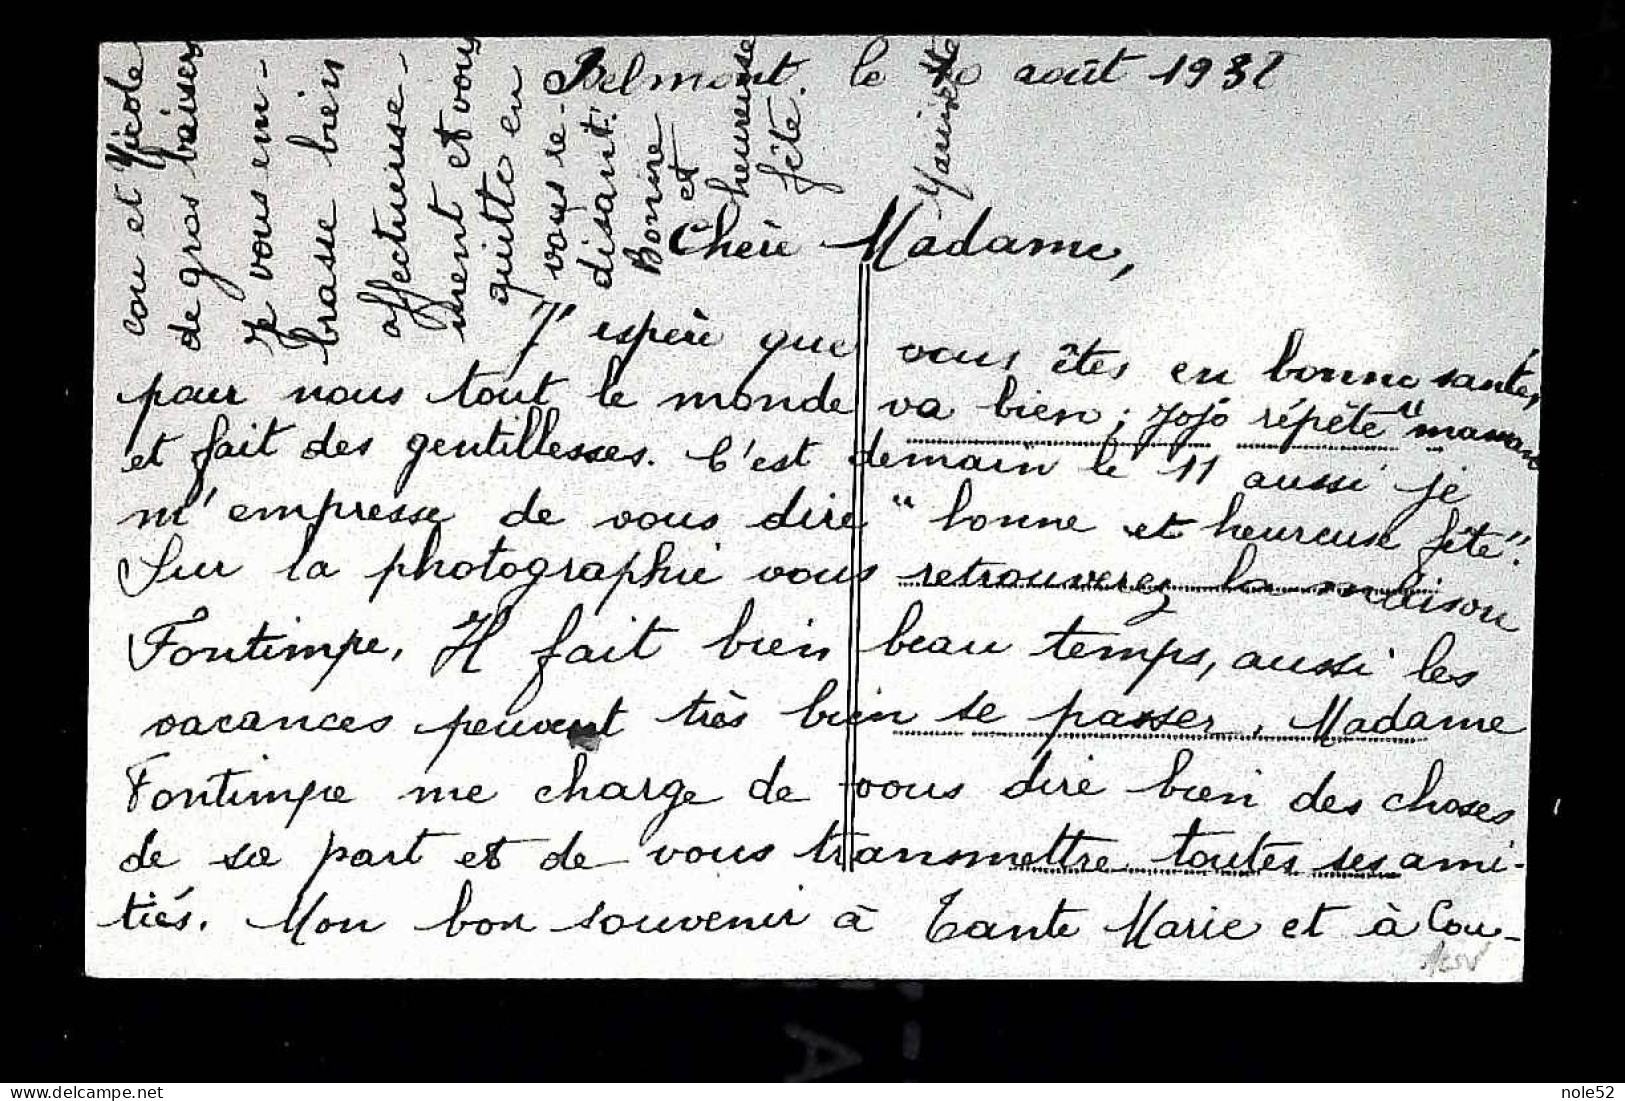 Belmont. le 10 août 1932
Chère Madame,
J'espère que vous êtes en bonne santé;
pour nous tout le monde va bien; Jojo répète "maman
et fait des gentillesses. C'est demain le 11 aussi je
m'empresse de vous dire "bonne et heureuse fête".
Sur la photographie vous retrouverez la maison
Fontimpe. Il fait bien beau temps, aussi les
vacances peuvent très bien se passer. Madame
Fontimpe me charge de vous dire bien des choses
de sa part et de vous transmettre toutes ses ami-
tiés. Mon bon souvenir à Tante Marie et à Cou-
cou et Nicole
de gros baisers
Je vous em-
brasse bien
affectueuse-
ment et vous
quitte en
vous re-
disant:
Bonne
et
heureuse
fête.
nole52